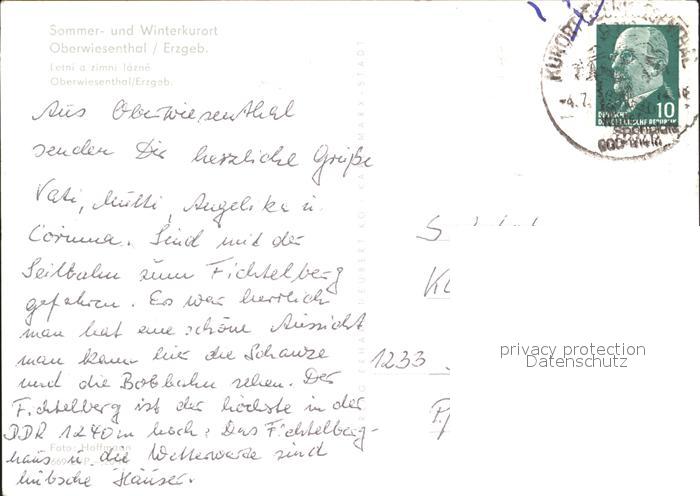 Sommer- und Winterkurort
Oberwiesenthal / Erzgeb.
Letni a zimni lázně
Oberwiesenthal/Erzgeb.
Aus Oberwiesenthal
senden Dir herzliche Grüße
Vati, Mutti, Angelika u.
Corinna. Sind mit der
Seilbahn zum Fichtelberg
gefahren. Es war herrlich
man hat eine schöne Aussicht
man kann hier die Schanze
und die Bobbahn sehen. Der
Fichtelberg ist der höchste in der
DDR 1240m hoch. Das Fichtelberg-
haus u. die Wetterwarte sind
hübsche Häuser.
Foto: Hoffmann
KARL-MARX-STADT
10
DEUTSCHE
DEMOKRATISCHE REPUBLIK
1233
privacy protection
Datenschutz